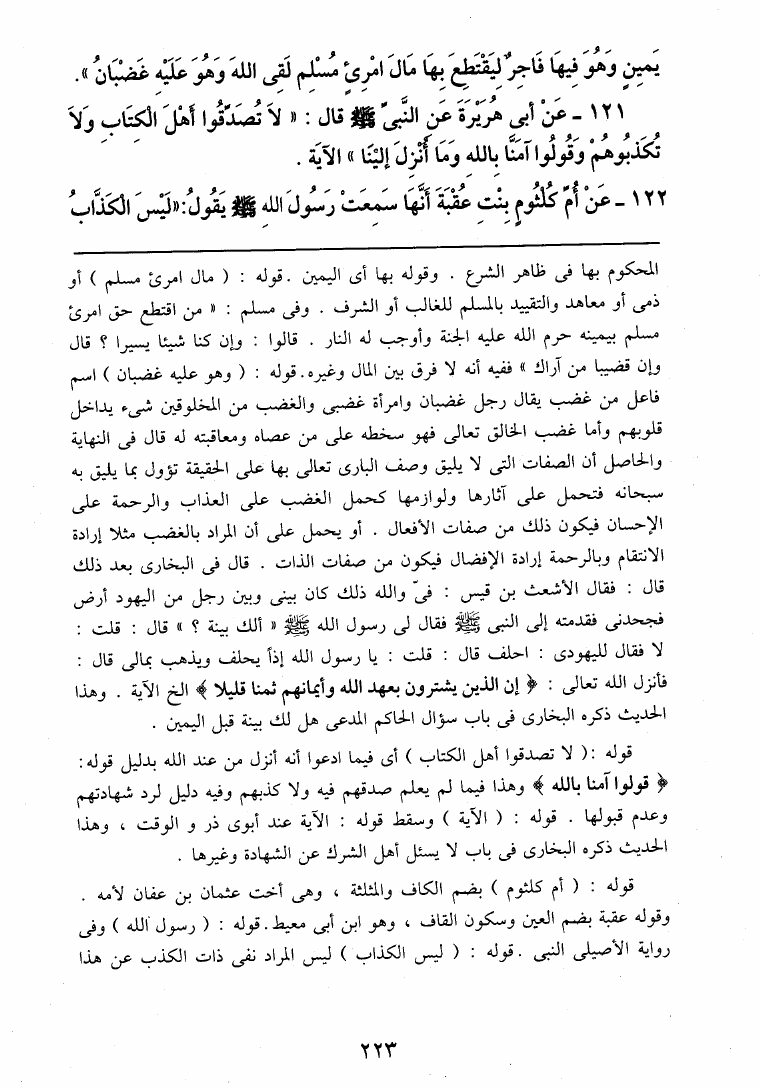 يَمِينٍ وَهُوَ فِيهَا فَاجِرٌ لِيَقْتَطِعَ بِهَا مَالَ امْرِئٍ مُسْلِمٍ لَقِى اللهَ وَهُوَ عَلَيْهِ غَضْبَانُ » .
١٢١ ـ عَنْ أَبِى هُرَيْرَةَ عَنِ النَّبِىِّ ﷺ قال : « لاَ تُصَدِّقُوا أَهْلَ الْكِتَابِ وَلاَ
تُكَذِّبُوهُمْ وَقُولُوا آمَنَّا بِاللهِ وَمَا أُنْزِلَ إِلَيْنَا » الآيَةَ .
١٢٢ ـ عَنْ أُمِّ كُلْثُومٍ بِنْتِ عُقْبَةَ أَنَّهَا سَمِعَتْ رَسُولَ اللهِ ﷺ يَقُولُ : « لَيْسَ الْكَذَّابُ
المحكوم بها فى ظاهر الشرع . وقوله بها أى اليمين . قوله : ( مال امرئ مسلم ) أو
ذمى أو معاهد والتقييد بالمسلم للغالب أو الشرف . وفى مسلم : « من اقتطع حق امرئ
مسلم بيمينه حرم الله عليه الجنة وأوجب له النار . قالوا : وإن كنا شيئا يسيرا ؟ قال
وإن قضيبا من آراك » ففيه أنه لا فرق بين المال وغيره . قوله : ( وهو عليه غضبان ) اسم
فاعل من غضب يقال رجل غضبان وامرأة غضبى والغضب من المخلوقين شىء يداخل
قلوبهم وأما غضب الخالق تعالى فهو سخطه على من عصاه ومعاقبته له قال فى النهاية
والحاصل أن الصفات التى لا يليق وصف البارى تعالى بها على الحقيقة تؤول بما يليق به
سبحانه فتحمل على آثارها ولوازمها كحمل الغضب على العذاب والرحمة على
الإحسان فيكون ذلك من صفات الأفعال . أو يحمل على أن المراد بالغضب مثلا إرادة
الانتقام وبالرحمة إرادة الإفضال فيكون من صفات الذات . قال فى البخارى بعد ذلك
قال : فقال الأشعث بن قيس : فىّ والله ذلك كان بينى وبين رجل من اليهود أرض
فجحدنى فقدمته إلى النبى ﷺ فقال لى رسول الله ﷺ « ألك بينة ؟ » قال : قلت :
لا فقال لليهودى : احلف قال : قلت : يا رسول الله إذاً يحلف ويذهب بمالى قال :
فأنزل الله تعالى : ﴿ إن الذين يشترون بعهد الله وأيمانهم ثمنا قليلا ﴾ الخ الآية . وهذا
الحديث ذكره البخارى فى باب سؤال الحاكم المدعى هل لك بينة قبل اليمين .
قوله :( لا تصدقوا أهل الكتاب ) أى فيما ادعوا أنه أنزل من عند الله بدليل قوله :
﴿ قولوا آمنا بالله ﴾ وهذا فيما لم يعلم صدقهم فيه ولا كذبهم وفيه دليل لرد شهادتهم
وعدم قبولها . قوله : ( الآية ) وسقط قوله : الآية عند أبوى ذر و الوقت ، وهذا
الحديث ذكره البخارى فى باب لا يسئل أهل الشرك عن الشهادة وغيرها .
قوله : ( أم كلثوم ) بضم الكاف والمثلثة ، وهى أخت عثمان بن عفان لأمه .
وقوله عقبة بضم العين وسكون القاف ، وهو ابن أبى معيط . قوله : ( رسول الله ) وفى
رواية الأصيلى النبى . قوله : ( ليس الكذاب ) ليس المراد نفى ذات الكذب عن هذا
٢٢٣